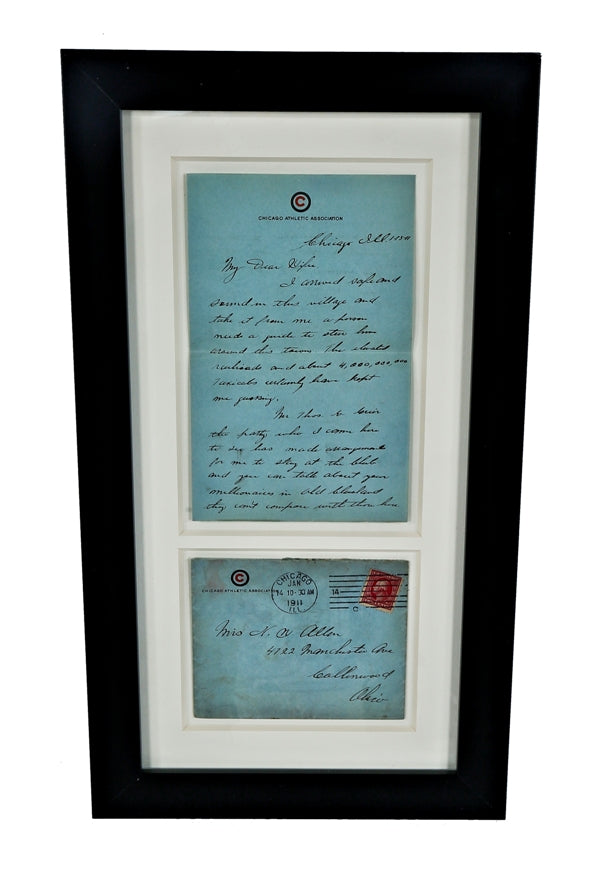 C
CHICAGO ATHLETIC ASSOCIATION
Chicago Ill
My Dear Wifie
I arrived safe and
sound in this village and
take it from me a person
needs a guide to steer him
around this town. The elevated
railroads and about 4,000,000,000
Taxicabs certainly have kept
me guessing.
Mr Thos
the party who I came here
to see has made arrangements
for me to stay at the Club
and you can talk about your
millionaires in old Cleveland
they can't compare with those here
C
CHICAGO ATHLETIC ASSOCIATION
CHICAGO
JAN
14 10-30 AM
1911
ILL
1A
C
Mrs N. W. Allen
4122 Manchester Ave
Collinwood
Ohio